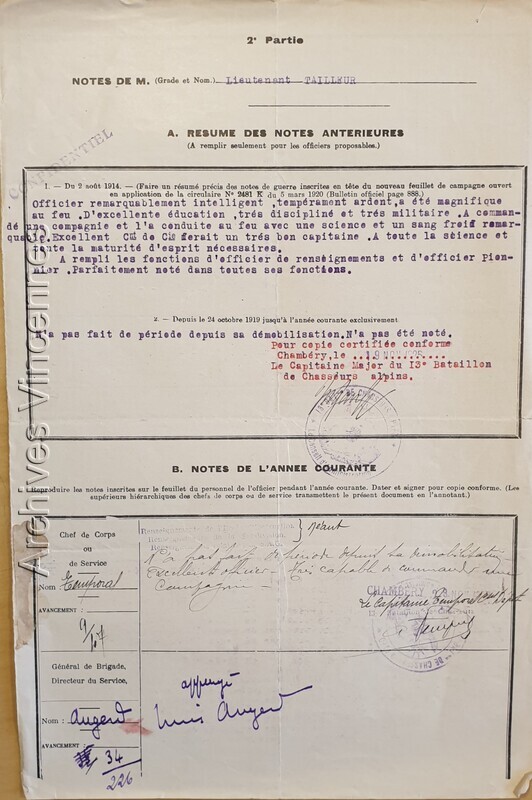 2e Partie
NOTES DE M. (Grade et Nom.) Lieutenant TAILLEUR
CONFIDENTIEL
A. RESUME DES NOTES ANTERIEURES
(A remplir seulement pour les officiers proposables.)
1. — Du 2 août 1914. — (Faire un résumé précis des notes de guerre inscrites en tête du nouveau feuillet de campagne ouvert
en application de la circulaire No 2481 K du 5 mars 1920 (Bulletin officiel page 888.)
Officier remarquablement intelligent ,tempérament ardent,a été magnifique
au feu .D'excellente éducation ,trés discipliné et trés militaire .A comman-
dé une compagnie et l'a conduite au feu avec une science et un sang froid remar-
quable.Excellent Cdt de Cie ferait un trés bon capitaine .A toute la science et
toute la maturité d'esprit nécessaires.
A rempli les fonctions d'officier de renseignements et d'officier Pion-
nier .Parfaitement noté dans toutes ses fonctions.
2. — Depuis le 24 octobre 1919 jusqu'à l'année courante exclusivement
N'a pas fait de période depuis sa démobilisation.N'a pas été noté.
Pour copie certifiée conforme
Chambéry,le
Le Capitaine Major du 13e Bataillon
de Chasseurs alpins.
B. NOTES DE L'ANNEE COURANTE
(Reproduire les notes inscrites sur le feuillet du personnel de l'officier pendant l'année courante. Dater et signer pour copie conforme. (Les
supérieurs hiérarchiques des chefs de corps ou de service transmettent le présent document en l'annotant.)
Chef de Corps
ou
de Service
Nom : Temporal
AVANCEMENT :
9/107
néant
N'a pas fait de période depuis sa démobilisation
Excellent officier - très capable de commander une
Compagnie
CHAMBERY
Le Capitaine Temporal
Général de Brigade,
Directeur du Service,
Nom : Augerd
AVANCEMENT :
34
226
Augerd
Archives Vincennes